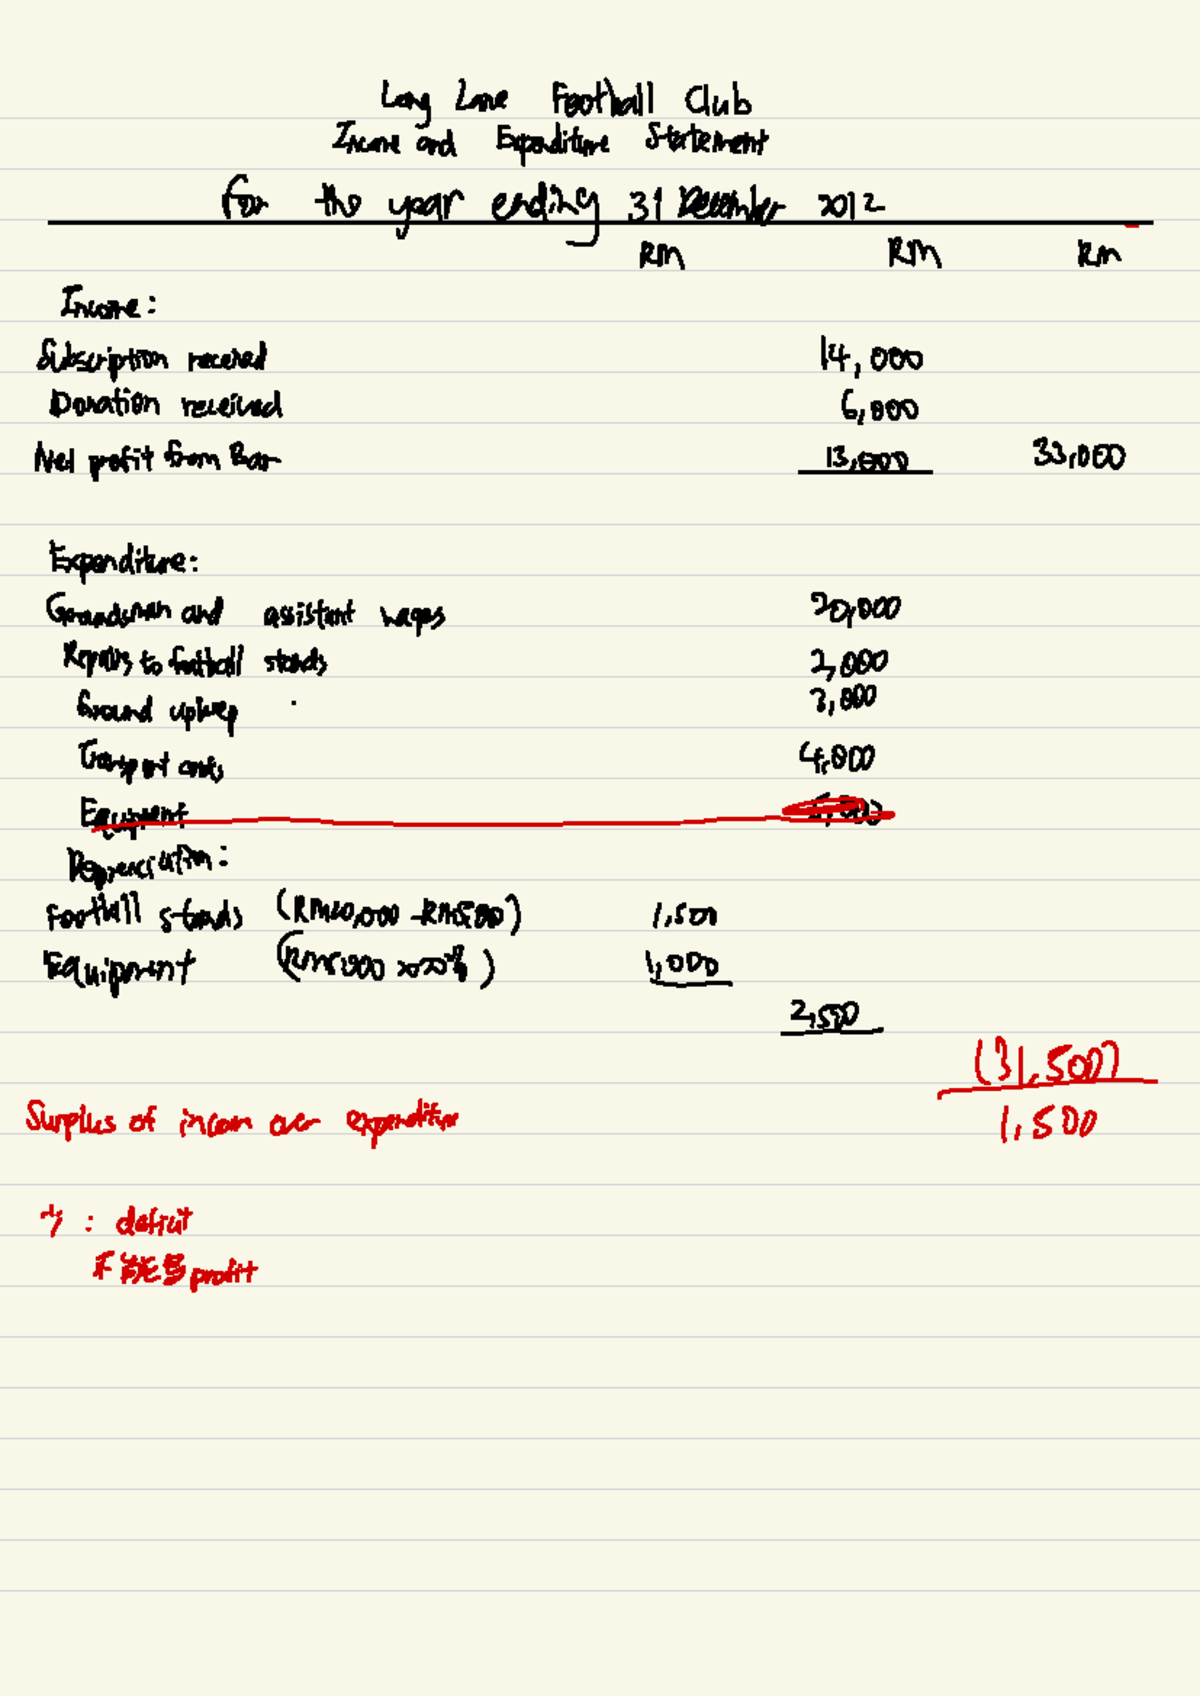 Long Lane Football Club
Income and Expenditure Statement
for the year ending 31 December 2012
RM RM RM
Income:
Subscription received 14,000
Donation received 6,000
Net profit from Bar 13,000 33,000
Expenditure:
Groundsman and assistant wages 20,000
Repairs to football stands 2,000
Ground upkeep 3,000
Transport costs 4,000
Equipment
Depreciation:
Football stands 1,500
Equipment 1,000
2,500
(31,500)
Surplus of incom over expenditure 1,500
: deficit
不能写 profit